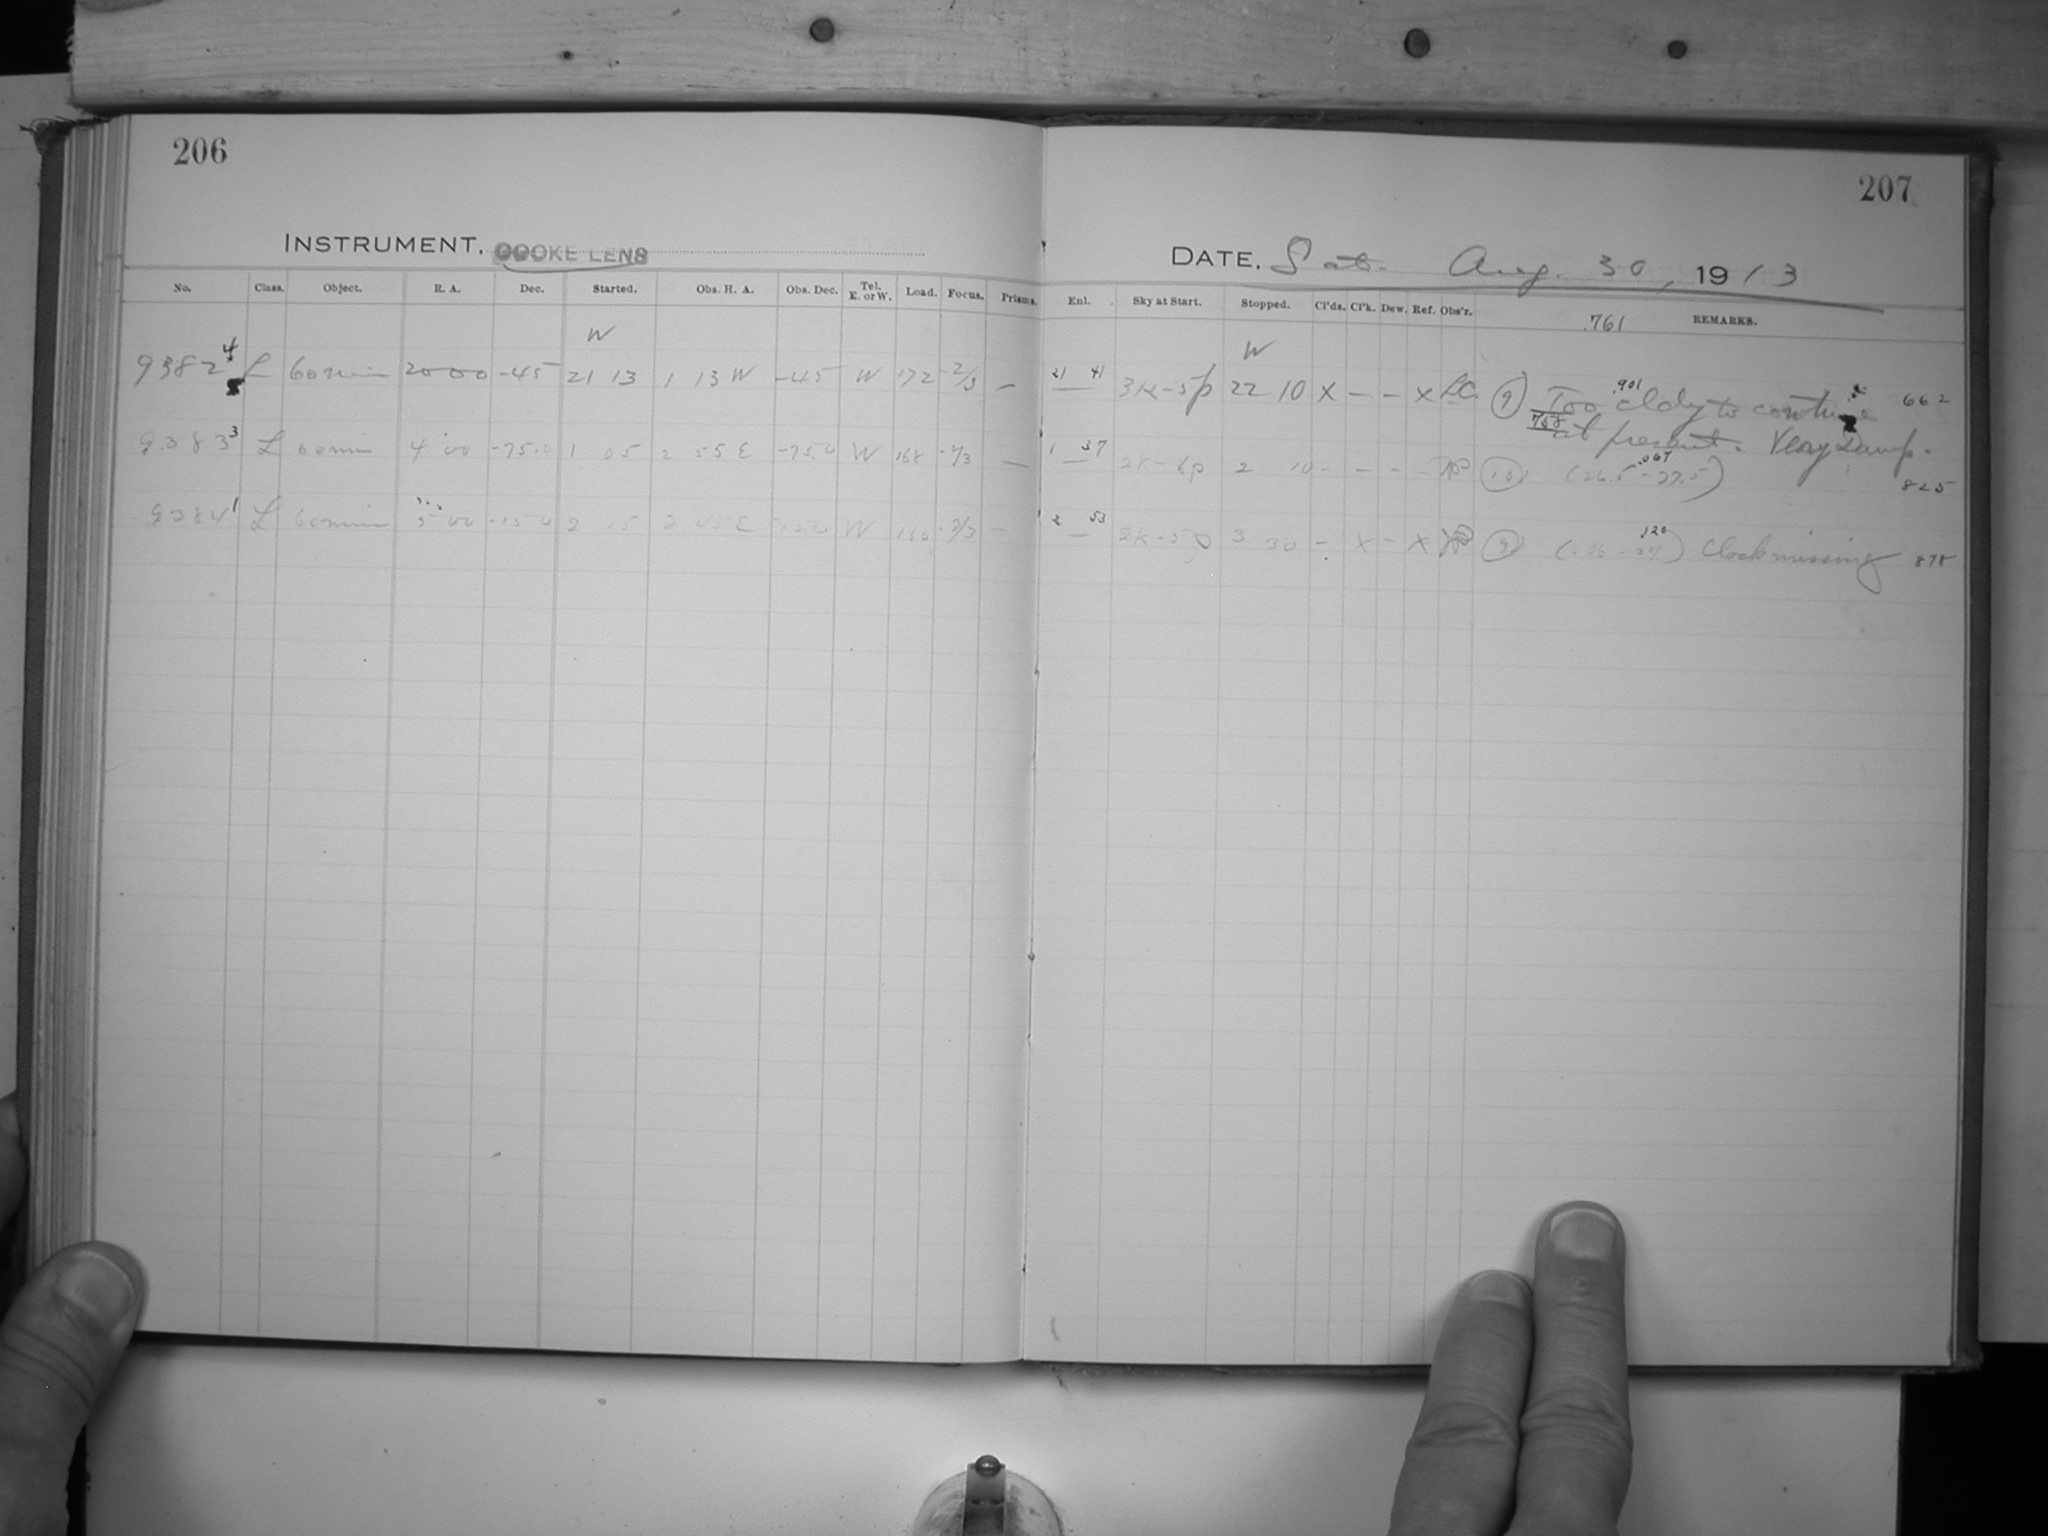 206
207
INSTRUMENT. COOKE LENS
DATE. Sat. Aug. 30, 1913
No. Class. Object. R. A. Dec. Started. Obs. H. A. Obs. Dec. Tel. E. or W. Load. Focus. Prisms. Enl. Sky at Start. Stopped. Cl'ds. Cl'k. Dew. Ref. Obs'r. .761 REMARKS.
W W
9382 4 L 60 min 20 00 -45 21 13 1 13 W -45 W 172 -2/3 — 21 41 3K-5p 22 10 X - - X LC. 9 .901 Too cloudy to continue 662
.758 at present. Very Damp.
9383 3 L 60 min 4 00 -75.0 1 05 2 55 E -75.0 W 168 — 1 37 2K-6p 2 10 - - - - 10 .067 (26.5-27.5) 825
9384 1 L 60 min 5 00 -15.0 2 15 2 45 E -15.0 W -2/3 — 2 53 2K-5p 3 30 - X - X 9 .120 Clock missing 878